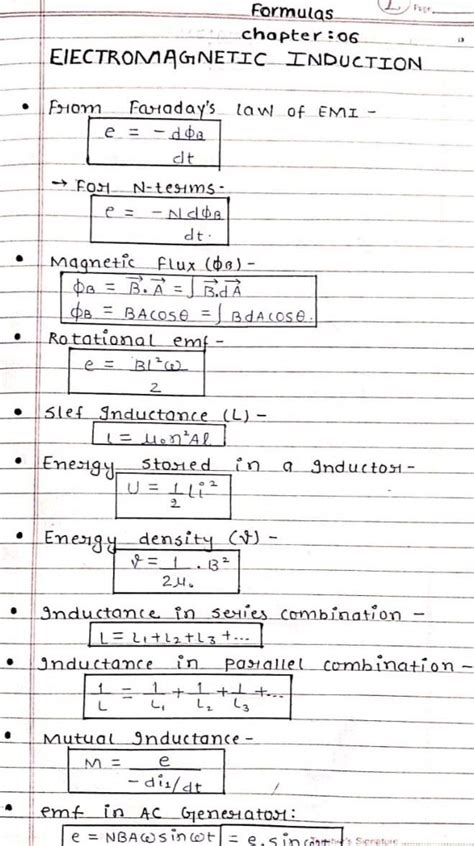 Formulas
1 Page
chapter : 06
ELECTROMAGNETIC INDUCTION
• From Faraday's law of EMI -
e = -dϕB/dt
→ For N-terms -
e = -NdϕB/dt.
• Magnetic flux (ϕB) -
ϕB = B⃗.A⃗ = ∫B⃗.dA⃗
ϕB = BAcosθ = ∫BdAcosθ.
• Rotational emf -
e = Bl²ω/2
• Slef Inductance (L) -
L = μ₀n²Al
• Energy stored in a Inductor -
U = 1/2 Li²
• Energy density (v) -
v = 1/2μ₀ . B²
• Inductance in series combination -
L = L₁+L₂+L₃+...
• Inductance in parallel combination -
1/L = 1/L₁ + 1/L₂ + 1/L₃ +...
• Mutual Inductance -
M = e/-di₁/dt
• emf in AC Generator:
e = NBAωsinωt = e₀sinωt